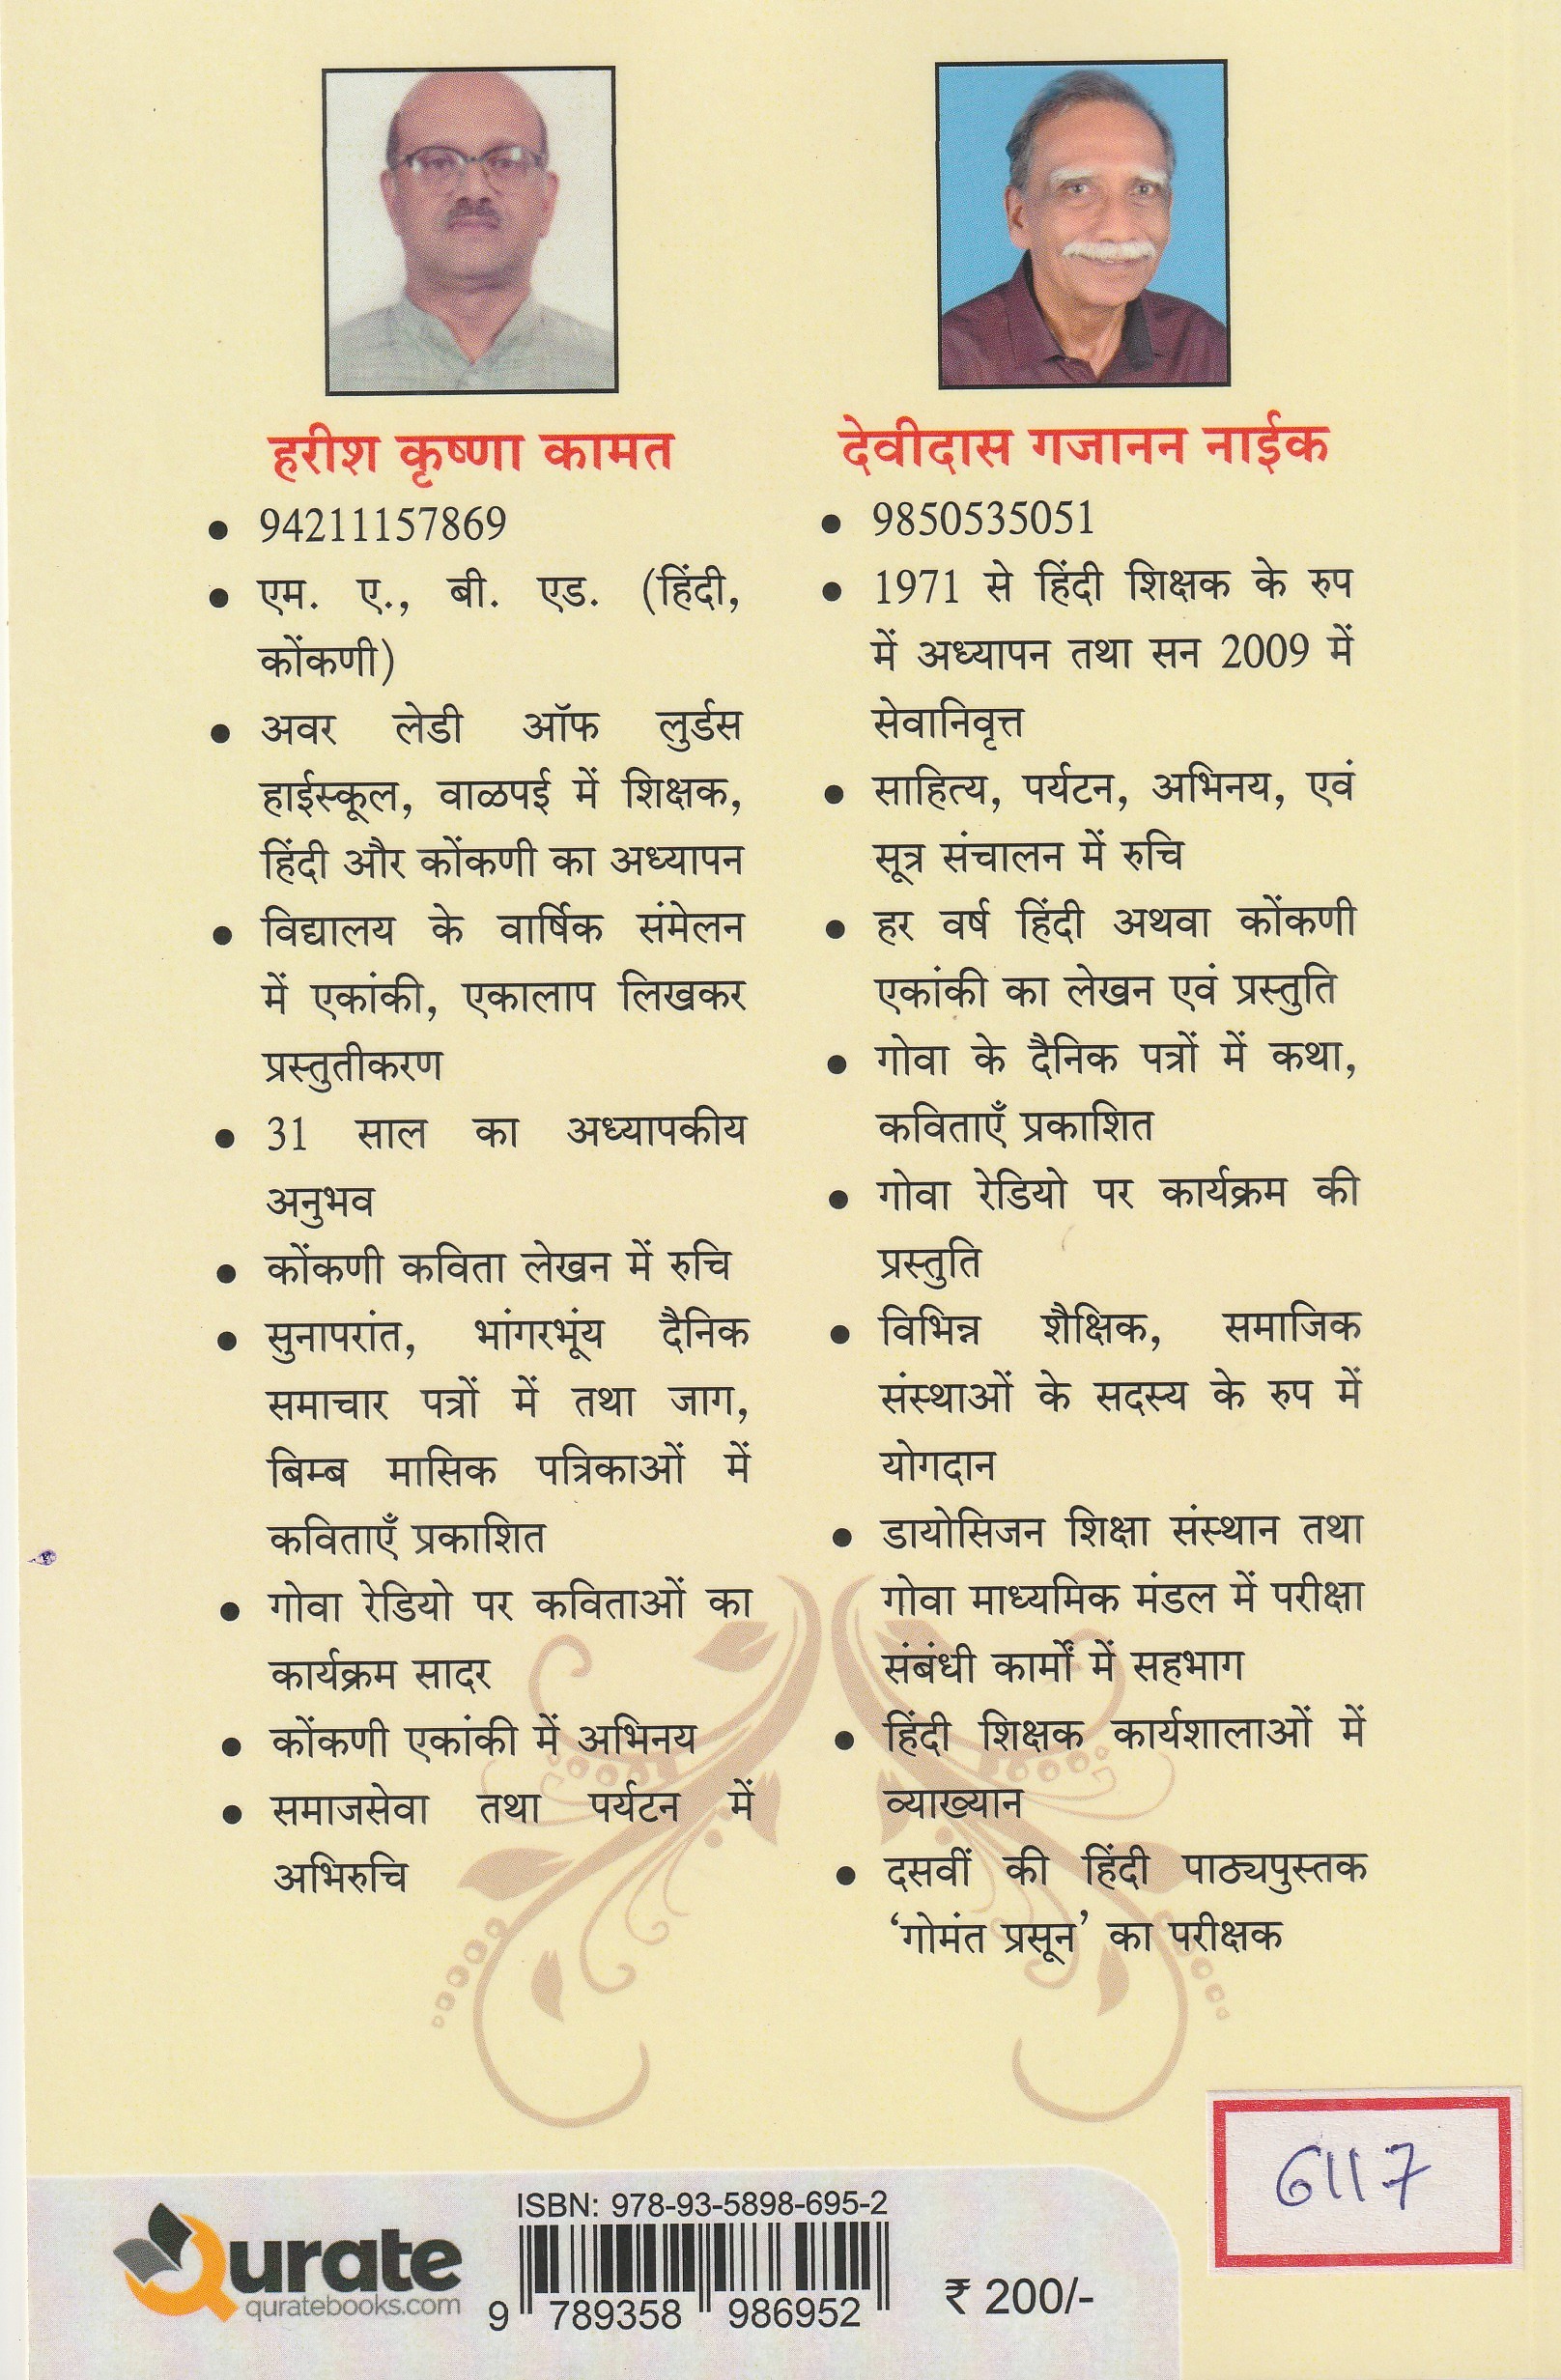 हरीश कृष्णा कामत
• 94211157869
• एम. ए., बी. एड. (हिंदी,
कोंकणी)
• अवर लेडी ऑफ लुर्डस
हाईस्कूल, वाळपई में शिक्षक,
हिंदी और कोंकणी का अध्यापन
• विद्यालय के वार्षिक संमेलन
में एकांकी, एकालाप लिखकर
प्रस्तुतीकरण
• 31 साल का अध्यापकीय
अनुभव
• कोंकणी कविता लेखन में रुचि
• सुनापरांत, भांगरभूंय दैनिक
समाचार पत्रों में तथा जाग,
बिम्ब मासिक पत्रिकाओं में
कविताएँ प्रकाशित
• गोवा रेडियो पर कविताओं का
कार्यक्रम सादर
• कोंकणी एकांकी में अभिनय
• समाजसेवा तथा पर्यटन में
अभिरुचि
देवीदास गजानन नाईक
• 9850535051
• 1971 से हिंदी शिक्षक के रुप
में अध्यापन तथा सन 2009 में
सेवानिवृत्त
• साहित्य, पर्यटन, अभिनय, एवं
सूत्र संचालन में रुचि
• हर वर्ष हिंदी अथवा कोंकणी
एकांकी का लेखन एवं प्रस्तुति
• गोवा के दैनिक पत्रों में कथा,
कविताएँ प्रकाशित
• गोवा रेडियो पर कार्यक्रम की
प्रस्तुति
• विभिन्न शैक्षिक, समाजिक
संस्थाओं के सदस्य के रुप में
योगदान
• डायोसिजन शिक्षा संस्थान तथा
गोवा माध्यमिक मंडल में परीक्षा
संबंधी कार्मों में सहभाग
• हिंदी शिक्षक कार्यशालाओं में
व्याख्यान
• दसवीं की हिंदी पाठ्यपुस्तक
‘गोमंत प्रसून’ का परीक्षक
6117
Qurate
quratebooks.com
ISBN: 978-93-5898-695-2
9 789358 986952
₹ 200/-